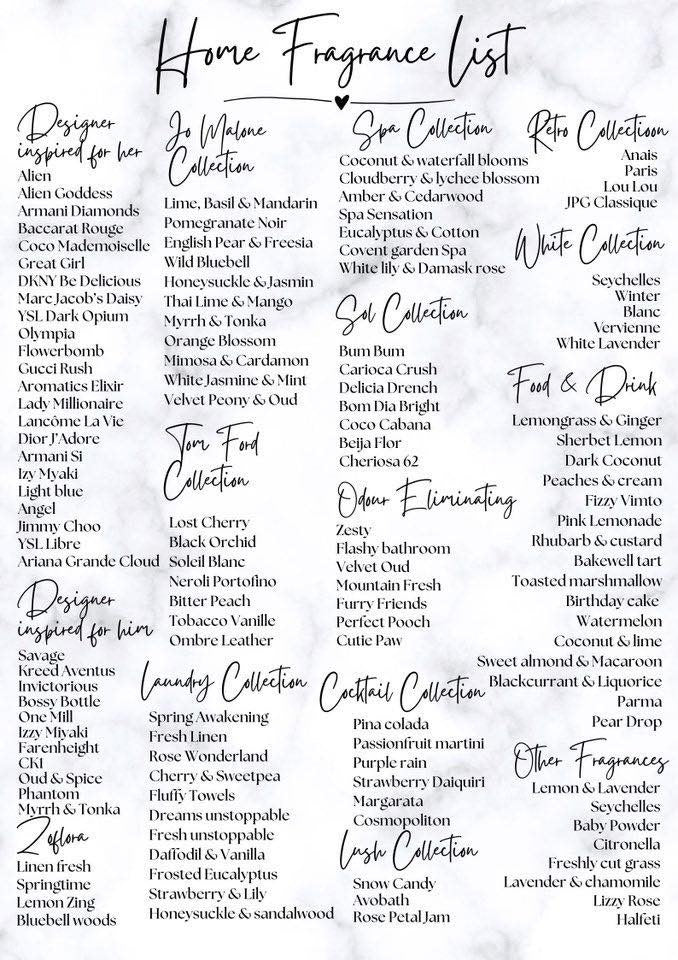 Home Fragrance List
Designer
inspired for her
Alien
Alien Goddess
Armani Diamonds
Baccarat Rouge
Coco Mademoiselle
Great Girl
DKNY Be Delicious
Marc Jacob's Daisy
YSL Dark Opium
Olympia
Flowerbomb
Gucci Rush
Aromatics Elixir
Lady Millionaire
Lancôme La Vie
Dior J'Adore
Armani Si
Izy Myaki
Light blue
Angel
Jimmy Choo
YSL Libre
Ariana Grande Cloud
Designer
inspired for him
Savage
Kreed Aventus
Invictorious
Bossy Bottle
One Mill
Izzy Miyaki
Farenheight
CK1
Oud & Spice
Phantom
Myrrh & Tonka
Zoflora
Linen fresh
Springtime
Lemon Zing
Bluebell woods
Jo Malone
Collection
Lime, Basil & Mandarin
Pomegranate Noir
English Pear & Freesia
Wild Bluebell
Honeysuckle & Jasmin
Thai Lime & Mango
Myrrh & Tonka
Orange Blossom
Mimosa & Cardamon
White Jasmine & Mint
Velvet Peony & Oud
Tom Ford
Collection
Lost Cherry
Black Orchid
Soleil Blanc
Neroli Portofino
Bitter Peach
Tobacco Vanille
Ombre Leather
Laundry Collection
Spring Awakening
Fresh Linen
Rose Wonderland
Cherry & Sweetpea
Fluffy Towels
Dreams unstoppable
Fresh unstoppable
Daffodil & Vanilla
Frosted Eucalyptus
Strawberry & Lily
Honeysuckle & sandalwood
Spa Collection
Coconut & waterfall blooms
Cloudberry & lychee blossom
Amber & Cedarwood
Spa Sensation
Eucalyptus & Cotton
Covent garden Spa
White lily & Damask rose
Sol Collection
Bum Bum
Carioca Crush
Delicia Drench
Bom Dia Bright
Coco Cabana
Beija Flor
Cheriosa 62
Odour Eliminating
Zesty
Flashy bathroom
Velvet Oud
Mountain Fresh
Furry Friends
Perfect Pooch
Cutie Paw
Cocktail Collection
Pina colada
Passionfruit martini
Purple rain
Strawberry Daiquiri
Margarata
Cosmopoliton
Lush Collection
Snow Candy
Avobath
Rose Petal Jam
Retro Collectioon
Anais
Paris
Lou Lou
JPG Classique
White Collection
Seychelles
Winter
Blanc
Vervienne
White Lavender
Food & Drink
Lemongrass & Ginger
Sherbet Lemon
Dark Coconut
Peaches & cream
Fizzy Vimto
Pink Lemonade
Rhubarb & custard
Bakewell tart
Toasted marshmallow
Birthday cake
Watermelon
Coconut & lime
Sweet almond & Macaroon
Blackcurrant & Liquorice
Parma
Pear Drop
Other Fragrances
Lemon & Lavender
Seychelles
Baby Powder
Citronella
Freshly cut grass
Lavender & chamomile
Lizzy Rose
Halfeti